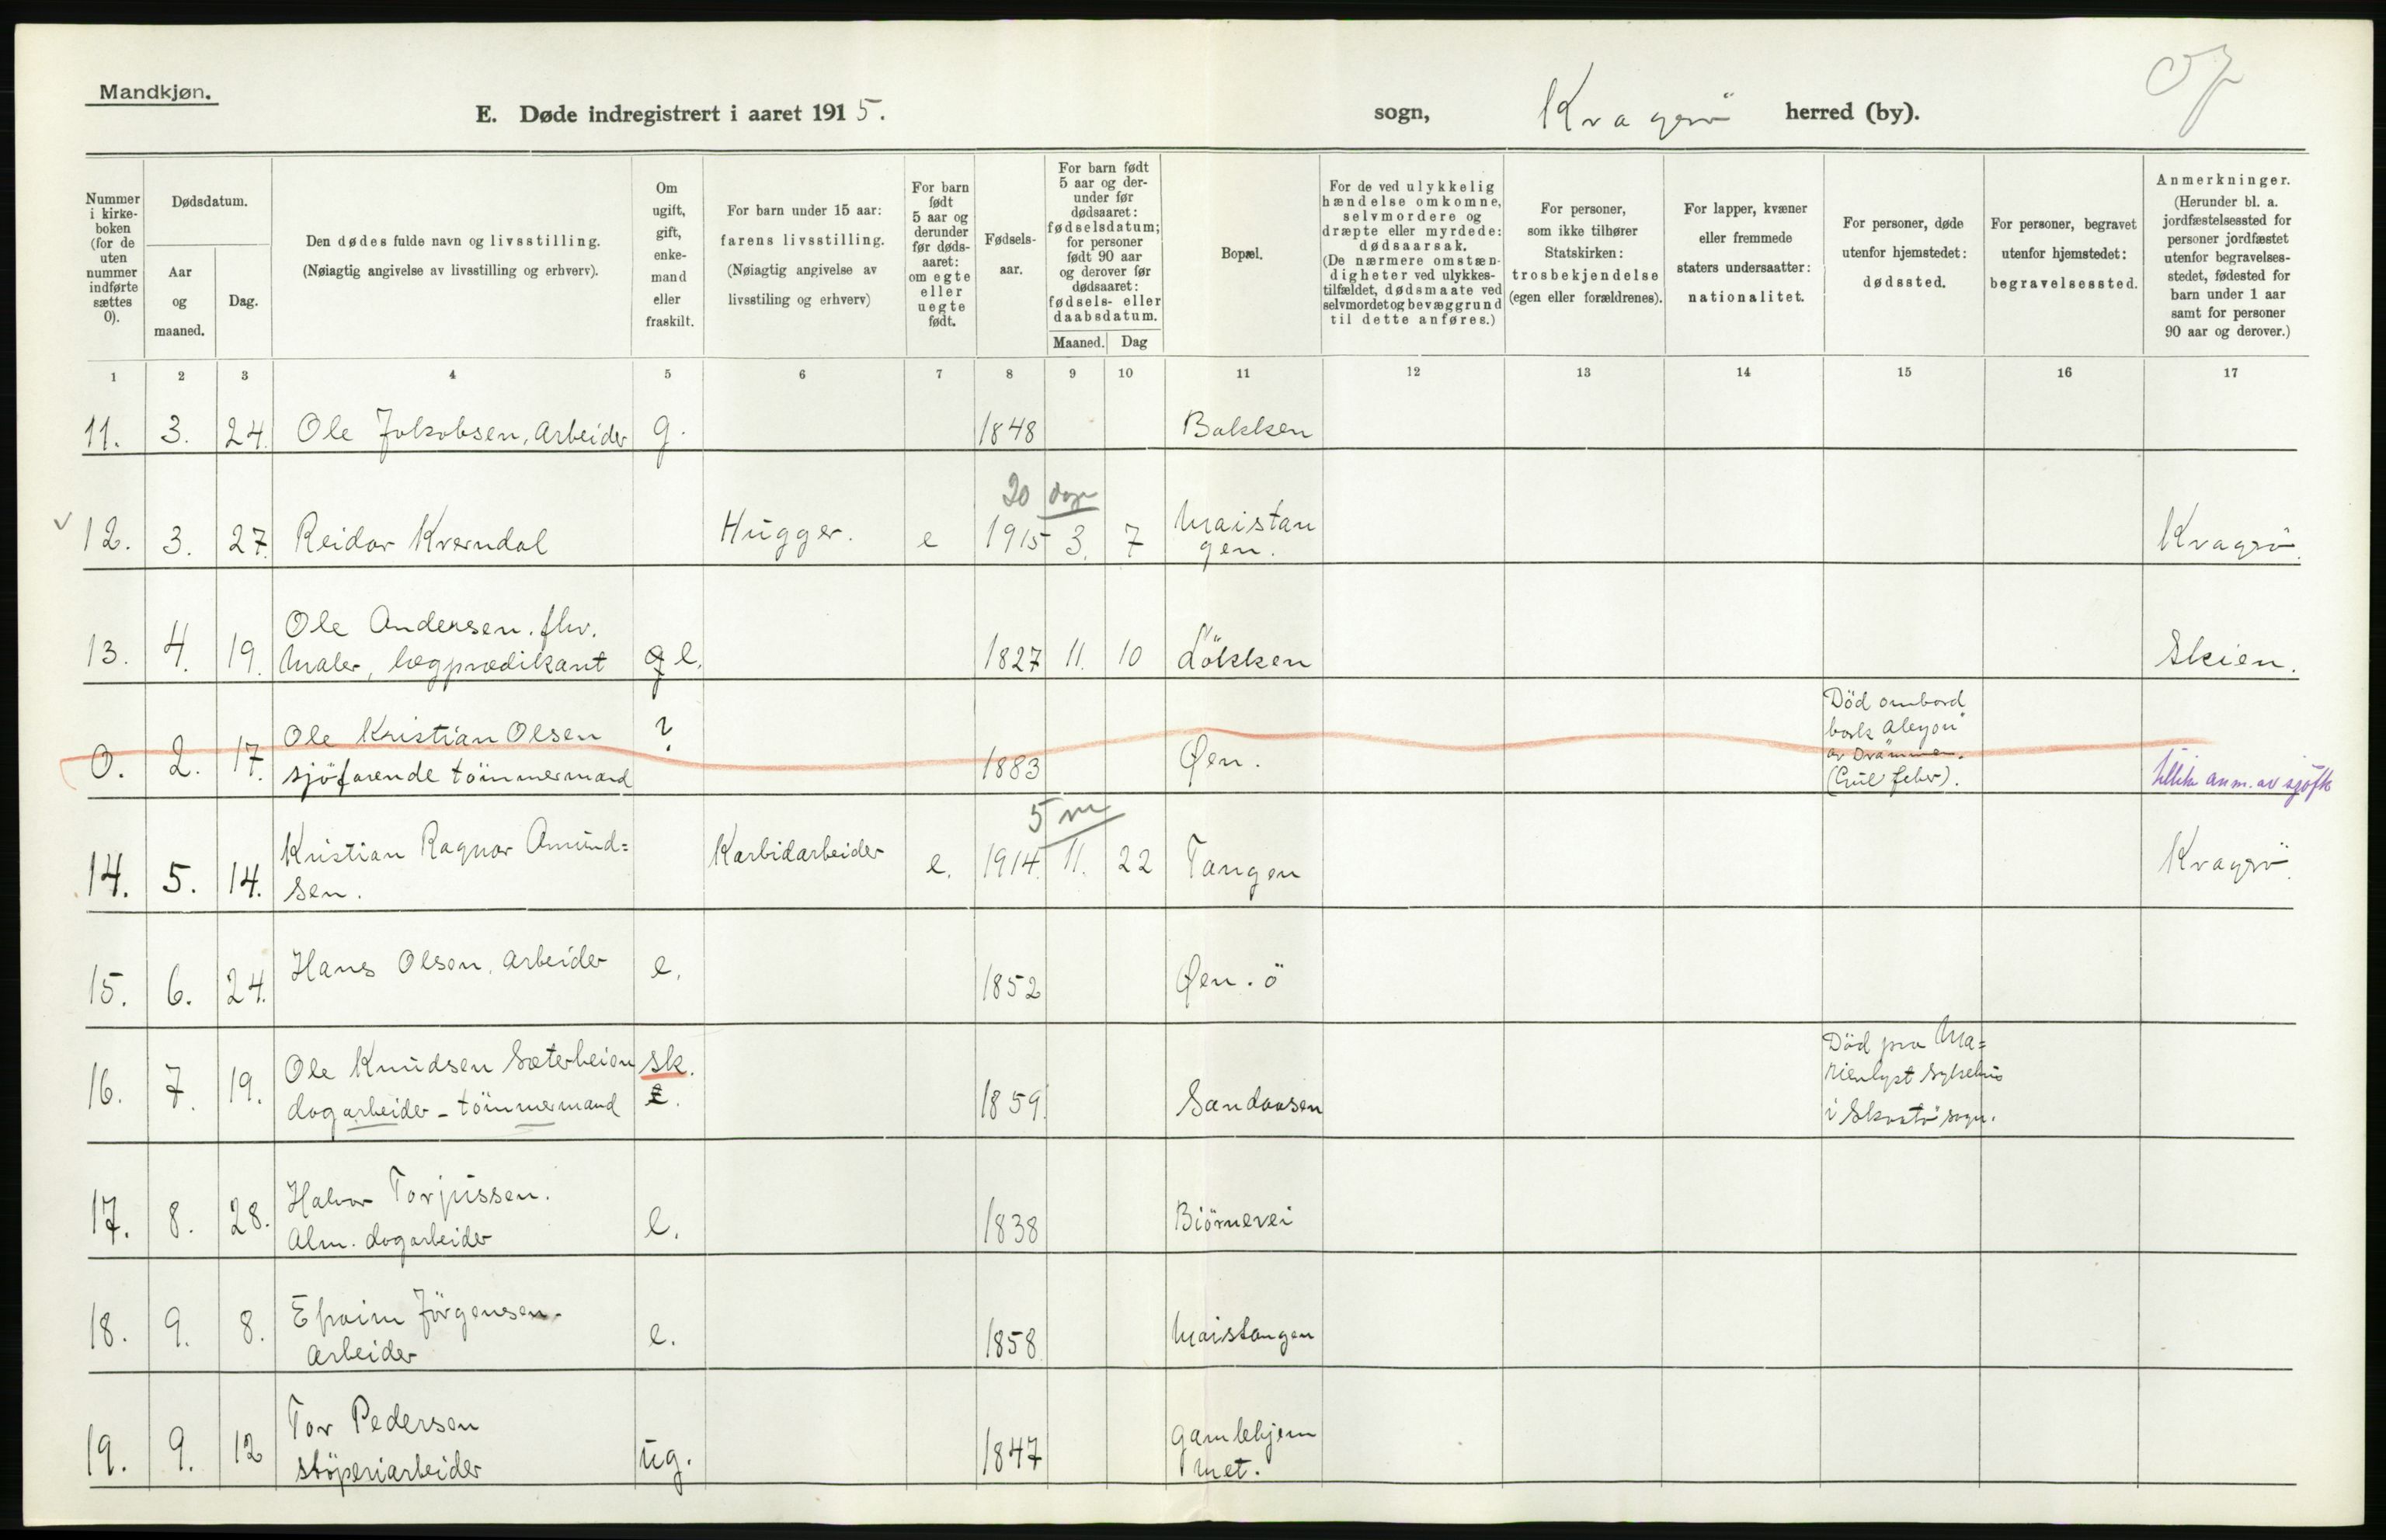 Mandkjøn.
E. Døde indregistrert i aaret 1915.
sogn, Kragerö herred (by).
Nummer i kirke-boken (for de uten nummer indførte sættes 0).
Dødsdatum.
Aar og maaned.
Dag.
Den dødes fulde navn og livsstilling.
(Nøiagtig angivelse av livsstilling og erhverv).
Om ugift, gift, enke-mand eller fraskilt.
For barn under 15 aar:
farens livsstilling.
(Nøiagtig angivelse av livsstiling og erhverv)
For barn født 5 aar og derunder før døds-aaret: om egte eller uegte født.
Fødsels-aar.
For barn født 5 aar og der-under før dødsaaret: fødselsdatum; for personer født 90 aar og derover før dødsaaret: fødsels- eller daabsdatum.
Maaned. Dag
Bopæl.
For de ved ulykkelig hændelse omkomne, selvmordere og dræpte eller myrdede: dødsaarsak.
(De nærmere omstæn-digheter ved ulykkes-tilfældet, dødsmaate ved selvmordet og bevæggrund til dette anføres.)
For personer, som ikke tilhører Statskirken: trosbekjendelse (egen eller forældrenes).
For lapper, kvæner eller fremmede staters undersaatter: nationalitet.
For personer, døde utenfor hjemstedet: dødssted.
For personer, begravet utenfor hjemstedet: begravelsessted.
Anmerkninger.
(Herunder bl. a. jordfæstelsessted for personer jordfæstet utenfor begravelses-stedet, fødested for barn under 1 aar samt for personer 90 aar og derover.)
1 2 3 4 5 6 7 8 9 10 11 12 13 14 15 16 17
11. 3. 24. Ole Jakobsen, Arbeider g. 1848 Bakken
20 dage
12. 3. 27. Reidar Kverndal Hugger. e 1915 3. 7 Maistan
gen. Kragerö.
Ole Andersen. fhv.
13. 4. 19. Maler, lægprædikant g e. 1827 11. 10 Lökken Skien.
Ole Kristian Olsen ? Död ombord
bark Alcyon
av Drammen.
0. 2. 17. sjöfarende tömmermand 1883 Øen. (Gul feber).
anm. av sjöfk
5 m
Kristian Ragnar Amund=
14. 5. 14. sen. Karbidarbeider e. 1914. 11. 22 Tangen Kragerö.
15. 6. 24. Hans Olsen, arbeider e. 1852 Øen. ö
Ole Knudsen Sæterheien sk. Död paa Ma=
rienlyst sykehus
16. 7. 19. dagarbeider - tömmermand 1859. Sandaasen i Skaatö sogn.
Halvor Torjussen.
17. 8. 28. Alm. dagarbeider e. 1838 Biörnevei
Efraim Jörgensen.
18. 9. 8. Arbeider e. 1858 Maistangen
Tor Pedersen Gamlehjem
19. 9. 12 stöperiarbeider ug. 1847 met.